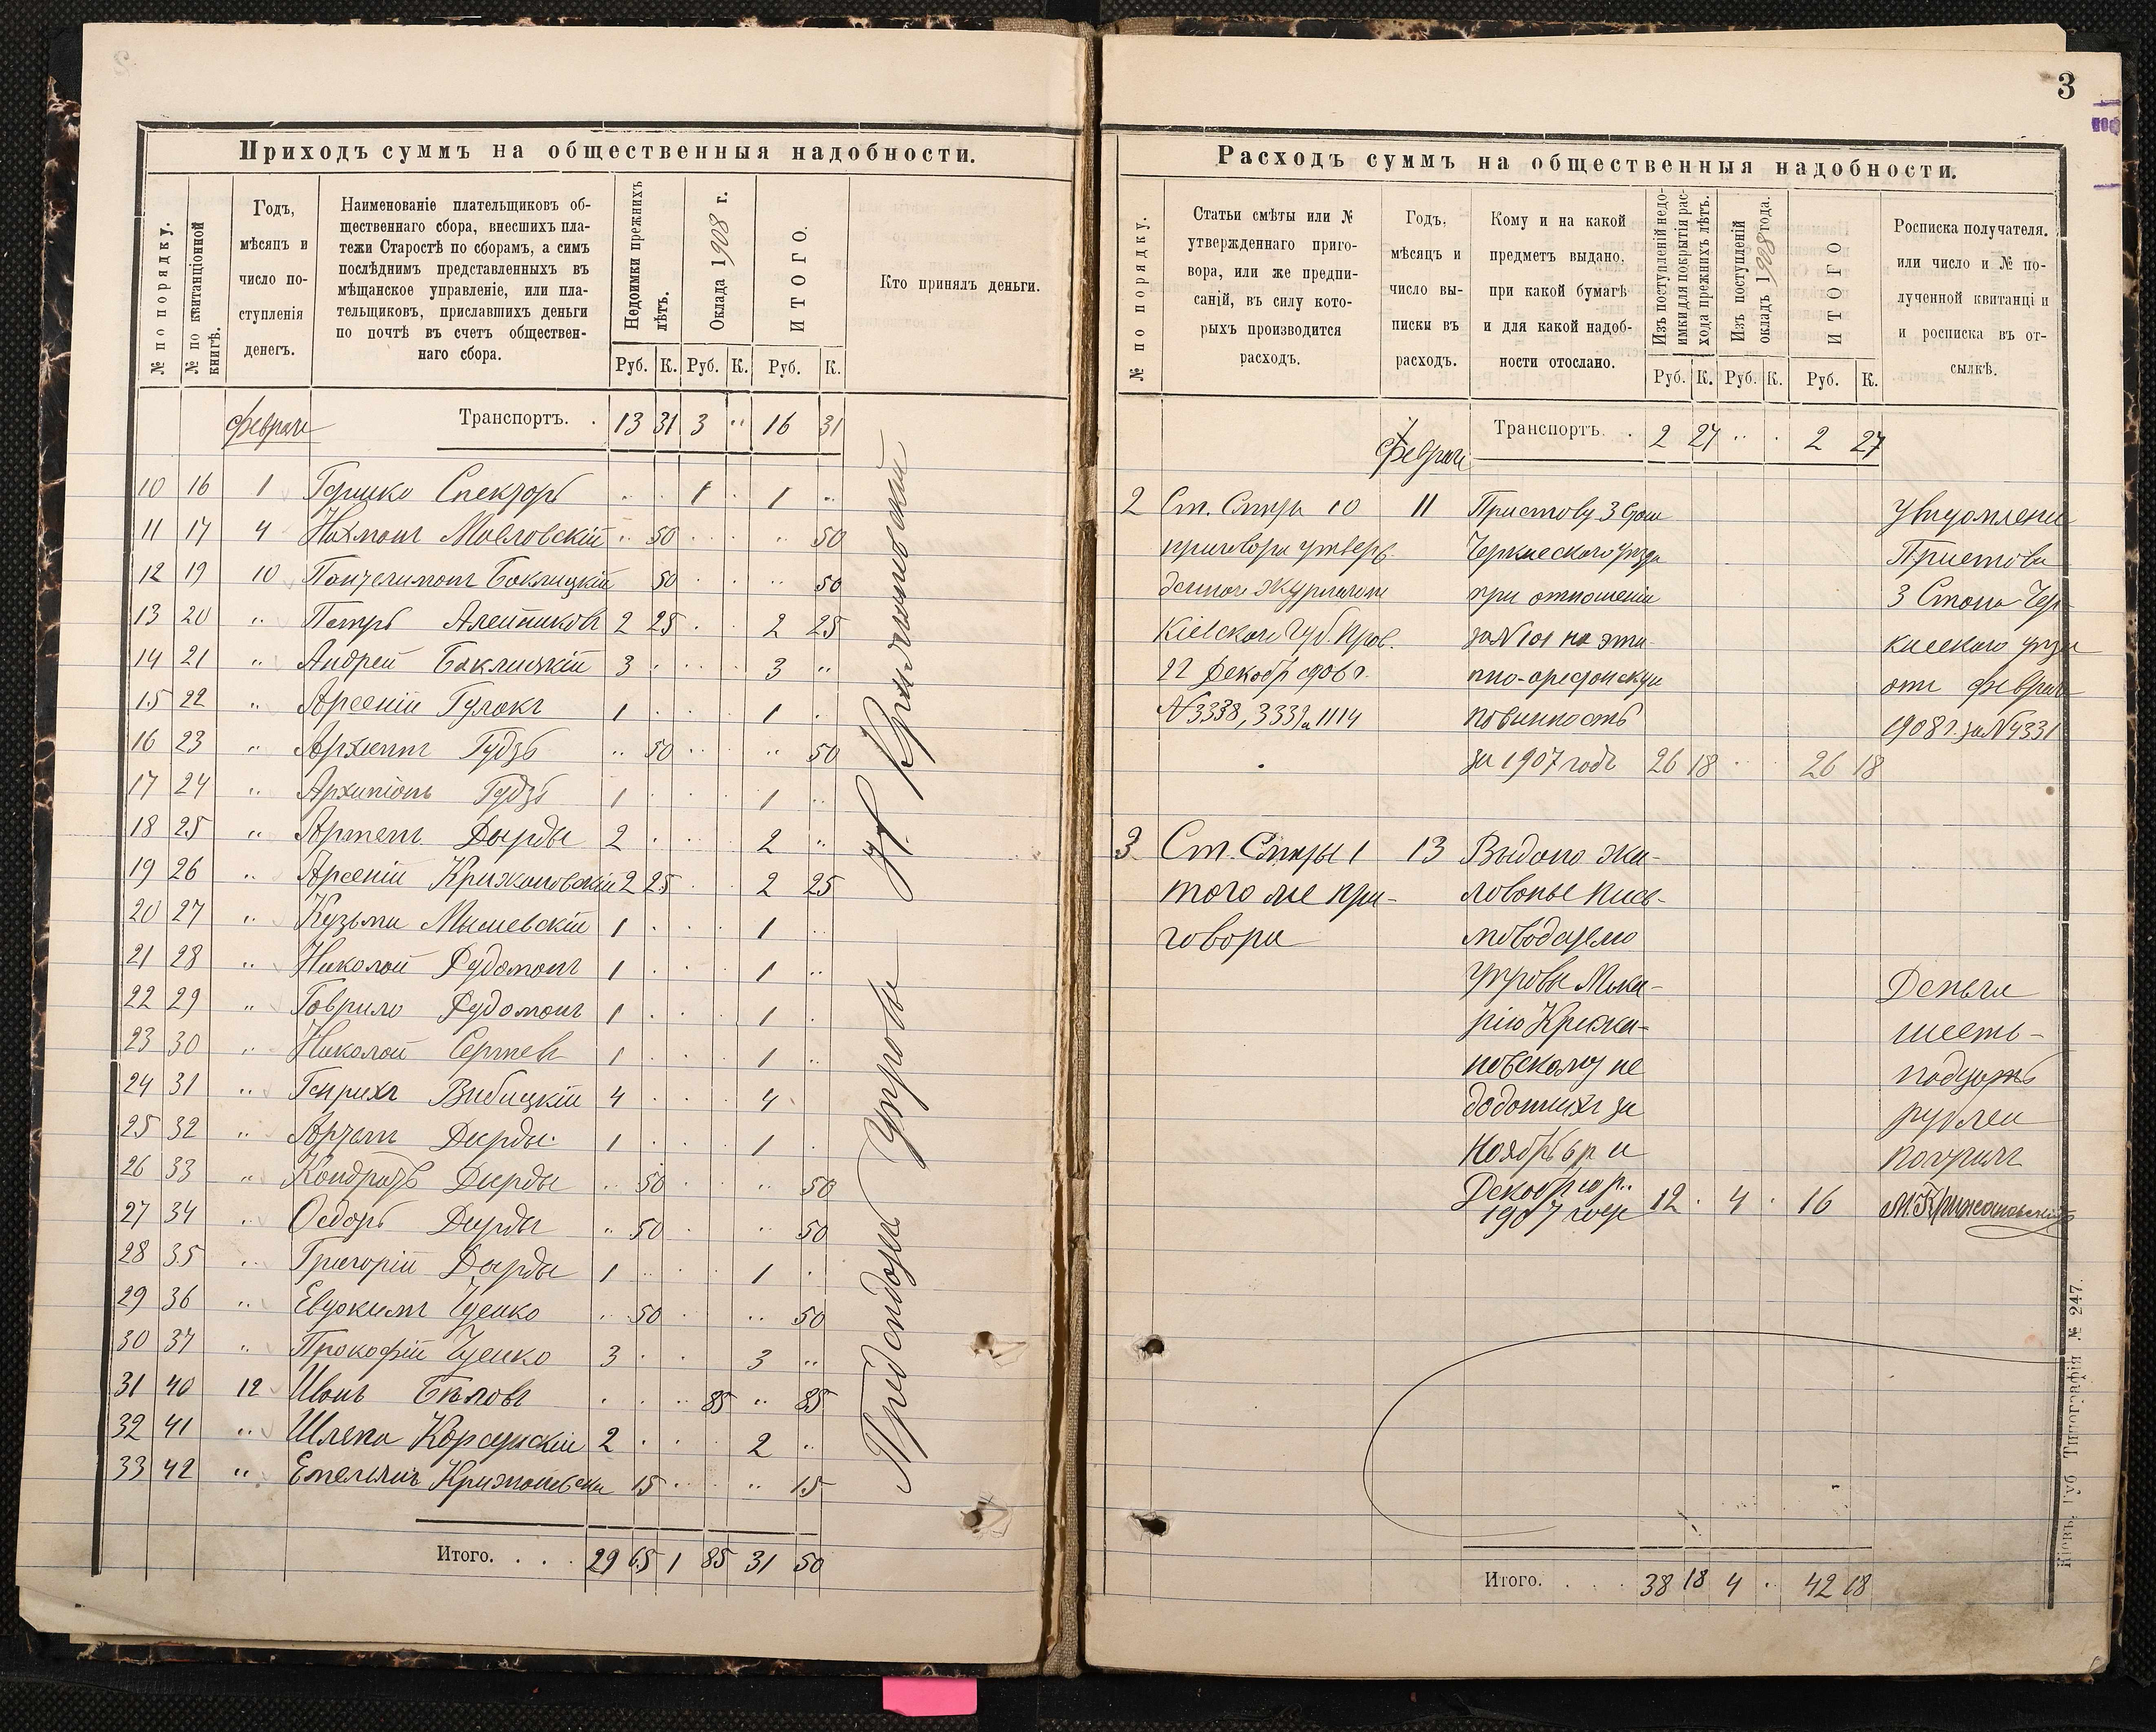 Приходъ суммъ на общественныя надобности.
№ по порядку.
№ по квитанціонной книгѣ.
Годъ,
мѣсяцъ и
число по-
ступленія
денегъ.
Наименованіе плательщиковъ об-
щественнаго сбора, внесшихъ пла-
тежи Старостѣ по сборамъ, а симъ
послѣднимъ представленныхъ въ
мѣщанское управленіе, или пла-
тельщиковъ, приславшихъ деньги
по почтѣ въ счетъ обществен-
наго сбора.
Недоимки прежнихъ лѣтъ.
Оклада 1908 г.
ИТОГО.
Кто принялъ деньги.
Руб. К. Руб. К. Руб. К.
Февраля Транспортъ. . 13 31 3 " 16 31
10 16 1 Гершко Спекторъ 1 1 "
11 17 4 Нахманъ Масловскій " 50 " 50
12 19 10 Пантелимонъ Баклицкій 50 " 50
13 20 " Петръ Алейниковъ 2 25 2 25
14 21 " Андрей Баклицкій 3 3 "
15 22 " Арсеній Гулакъ 1 1
16 23 " Архипъ Гудзь " 50 " 50
17 24 " Гудзь 1 1 "
18 25 " Артемъ Дырды 2 2 "
19 26 " Арсеній Крижановскій 2 25 2 25
20 27 " Кузьма Мишевскій 1 1
21 28 " Николай Рудоманъ 1 1 "
22 29 " Гаврило Рудоманъ 1 1
23 30 " Николай Сергѣевъ 1 1 "
24 31 " Генрихъ Вибицкій 4 4
25 32 " Артемъ Дырды 1 1
26 33 " Кондратъ Дырды " 50 " 50
27 34 " Ѳедоръ Дырды " 50 " 50
28 35 " Григорій Дырды 1 1
29 36 " Евдокимъ Гуенко " 50 " 50
30 37 " Прокофій Гуенко 3 3 "
31 40 12 Иванъ Бѣловъ 85 " 85
32 41 " Шлема Корсунскій 2 2 "
33 42 " Емельянъ Крижановски 15 " 15
Итого. . . . 29 65 1 85 31 50
Предсѣдатель Управы Н. Крижановскій
3
Расходъ суммъ на общественныя надобности.
№ по порядку.
Статьи смѣты или №
утвержденнаго приго-
вора, или же предпи-
саній, въ силу кото-
рыхъ производится
расходъ.
Годъ,
мѣсяцъ и
число вы-
писки въ
расходъ.
Кому и на какой
предметъ выдано,
при какой бумагѣ
и для какой надоб-
ности отослано.
Изъ поступленій недо-
имки для покрытія рас-
хода прежнихъ лѣтъ.
Изъ поступленій
окладъ 1908 года.
ИТОГО
Росписка получателя,
или число и № по-
лученной квитанціи
и росписка въ от-
сылкѣ.
Руб. К. Руб. К. Руб. К.
Февраля Транспортъ. . 2 27 " 2 27
2 Ст. Смѣты 10 11 Приставу 3 Стан
приговора утверж- Черкасскаго уѣзда
деннаго Журналомъ при отношеніи
Кіевскаго Губ. Прав. за № 101 на эта-
22 Декабр 906 г. пно-арестанскую
№ 3338, 3339 и 1114 повинность
за 1907 годъ 26 18 26 18
Увѣдомленіе
Пристава
3 Стана Чер-
касскаго уѣзда
отъ февраля
1908 г. за № 4331
3 Ст. Смѣты 1 13 Выдано жа-
того же при- лованье пись-
говора моводителю
Управы Мака-
рію Крижа-
новскому не
доданныхъ за
Ноябрь и
Декабрь
1907 года 12 4 16
Деньги
шест-
надцать
рублей
получилъ
М. Крижановскій
Итого. . . . 38 18 4 42 18
Кіевъ. Губ. Типографія № 247.